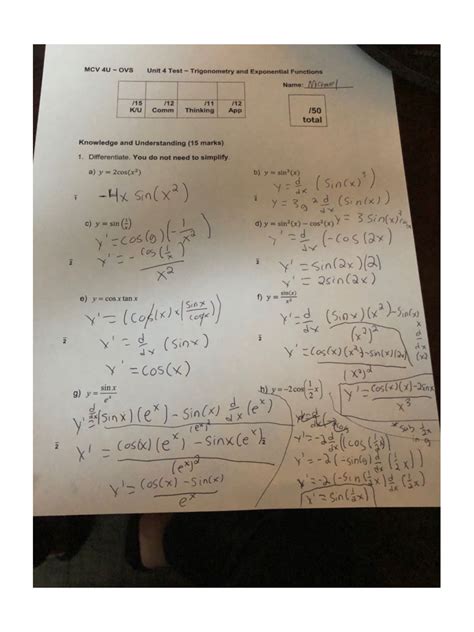 MCV 4U – OVS Unit 4 Test – Trigonometry and Exponential Functions
Name:
/15 /12 /11 /12
K/U Comm Thinking App
/50
total
Knowledge and Understanding (15 marks)
1. Differentiate. You do not need to simplify.
a) y = 2cos(x²)
-4x sin(x²)
b) y = sin³(x)
y = d/dx (sin(x)³)
y = 3g² d/dx (sin(x))
y = 3 sin(x)²
c) y = sin(1/x)
y' = cos(g)(-1/x²)
y' = -cos(1/x)/x²
d) y = sin²(x) – cos²(x)
y' = d/dx (-cos(2x))
y' = sin(2x)(2)
y' = 2sin(2x)
e) y = cos x tan x
y' = (cos(x) × (sinx/cosx))
y' = d/dx (sinx)
y' = cos(x)
f) y = sin(x)/x²
y' = d/dx (sinx)(x²) - sin(x) x d/dx (x²)
(x²)²
y' = cos(x)(x²) - sin(x)(2x)
(x²)²
y' = cos(x)(x) - 2sinx
x³
g) y = sin x/eˣ
y' = d/dx (sinx)(eˣ) - sin(x) d/dx (eˣ)
(eˣ)²
y' = cos(x)(eˣ) - sinx(eˣ)
(eˣ)²
y' = cos(x) - sin(x)
eˣ
h) y = -2cos(1/2 x)
* sub 1/2x = g
y' = -2 d/dx (cos(1/2 x))
y' = -2(-sin(g) d/dx (1/2 x))
y' = -2(-sin(1/2 x) d/dx (1/2 x))
y' = sin(1/2 x)